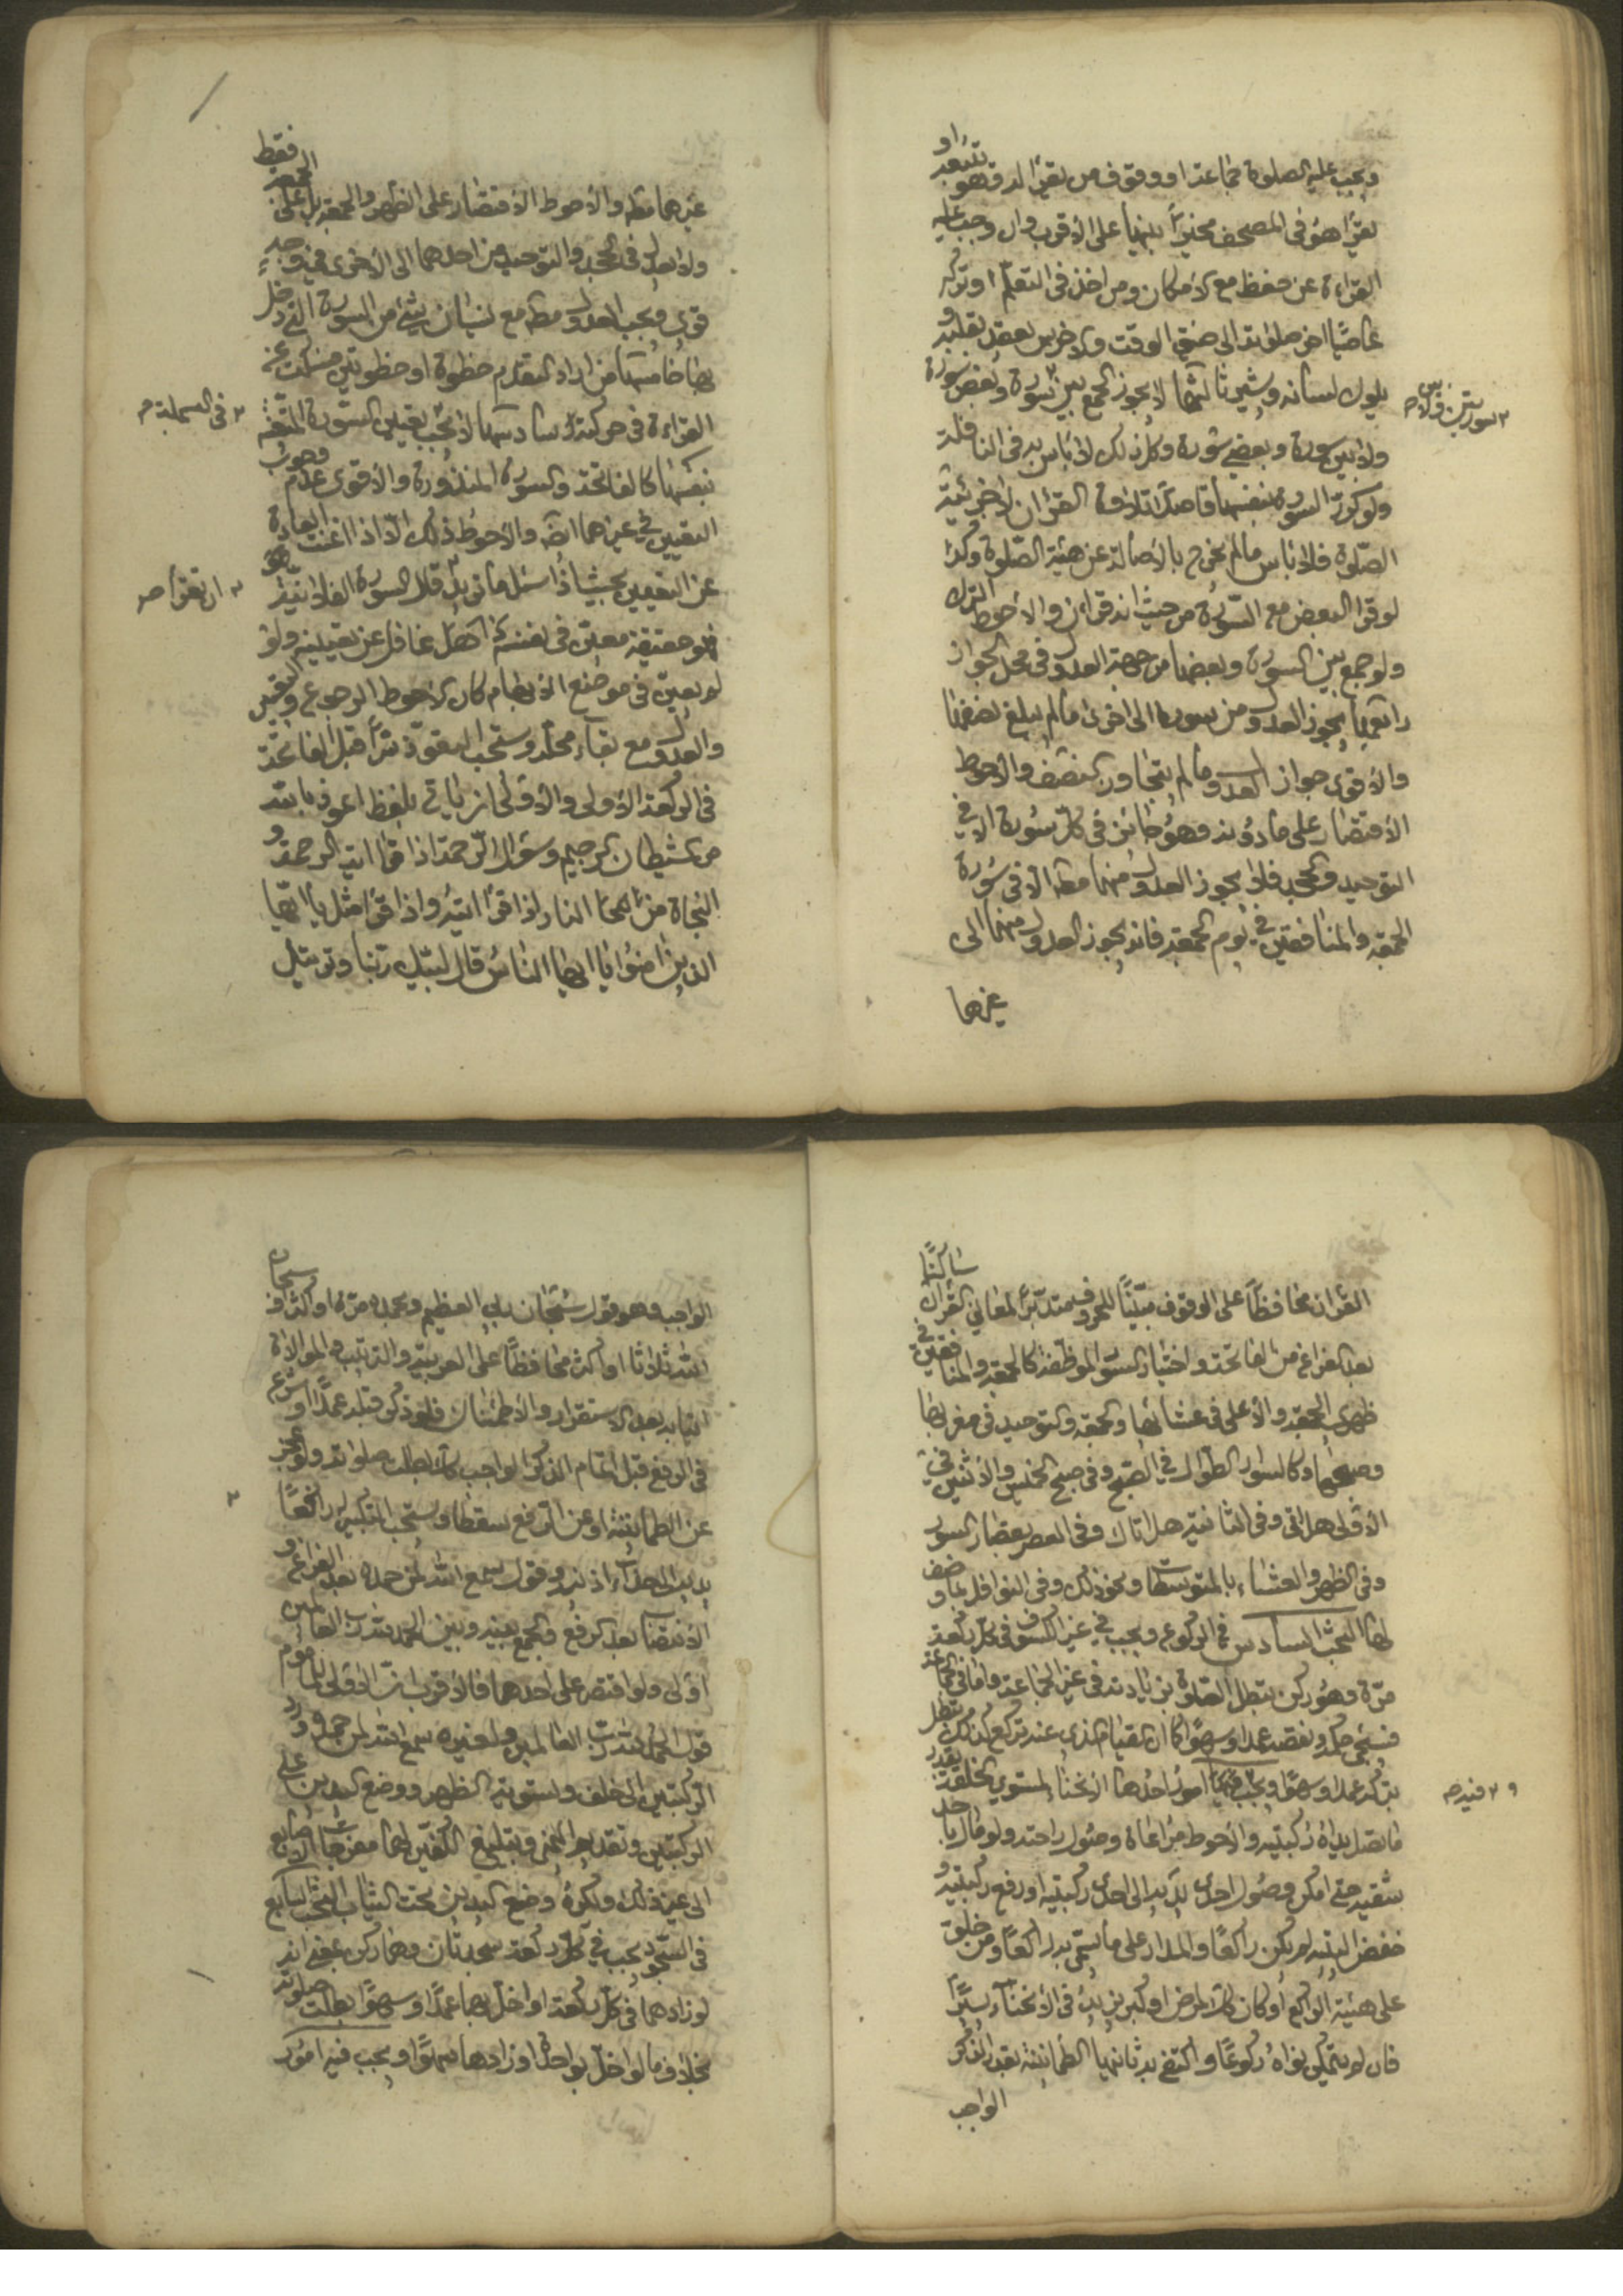 او
ويجب عليه الصلوة جماعة او وقوف من يقرأ له وهو يتبعه
يقرأ هو في المصحف مخيراً بينها على الأقرب وان وجب عليه
القراءة عن حفظ مع الامكان ومن اخذ في التعلم او تركه
عاصياً اخر صلوته الى ضيق الوقت والاخرس يعقد بقلبه و
يلوك لسانه ويشير ثالثها لا يجوز الجمع بين سورة وبعض سورة
سورتين ولا بين
ولا بين سورة وبعض سورة وكل ذلك لا بأس به في النافلة
ولو كرر السورة بنفسها قاصداً تلاوة القران لا جزئية
الصلوة فلا بأس ما لم يخرج بالأصالة عن هيئة الصلوة وكذا
لو قرأ البعض مع السورة من حيث انه قران والاحوط الترك
ولو جمع بين السورة وبعضها من جهة العدول في محل الجواز
رابعها يجوز العدول من سورة الى اخرى ما لم يبلغ نصفها
والأقوى جواز العدول ما لم يتجاوز النصف والأحوط
الأقتصار على ما دونه وهو جائز في كل سورة الا في
التوحيد والجحد فلا يجوز العدول منهما مطـ الا في سورة
الجمعة والمنافقين في يوم الجمعة فانه يجوز العدول منهما الى
غيرهما
فقط
غيرهما مطـ والأحوط الأقتصار على الظهر والجمعة بل على الجمعة
ولا يعدل في الجحد والتوحيد من احدهما الى الأخرى في وجه
قوى ويجب العدول مطـ مع نسيان شئ من السورة التي دخل
بها خامسها من اراد التقدم خطوة او خطوتين سكت عن
القراءة في حركته سادسها لا يجب تعيين السورة المتعينة
في البسملة
بنفسها كالفاتحة والسورة المنذورة والأقوى عدم وجوب
التعيين في غيرهما ايضـ والأحوط ذلك الا اذا اغنت العادة
عن التعيين بحيث اذا سئل ماتريد قال السورة الفلانية
ان تقرأ
فهو حقيقة معين في نفسه كنه غافل عن تعيينه ولو
لم يعين في موضع الابهام كان الأحوط الرجوع والتعيين
والعدول مع بقاء محله ويستحب التعوذ سراً قبل الفاتحة
في الركعة الأولى والأولى ان يأتى بلفظ اعوذ بالله
من الشيطان الرجيم وسؤال الرحمة اذا قرأ اية الرحمة و
النجاة من النار اذا قرأ ايته واذا قرأ مثل يا ايها
الذين امنوا يا ايها الناس قال لبيك ربنا وترتيل
ساكتًا
القران محافظاً على الوقوف مبيّناً للحروف متدبراً لمعاني القران
بعد الفراغ من الفاتحة واختيار السور الموظفة كالجمعة والمنافقين في
ظهري الجمعة والأعلى في عشائها والجمعة والتوحيد في مغربها
وصبحها وكالسور الطوال في الصبح وفي صبح الخميس والأثنين في
الأولى هل اتى وفي الثانية هل اتاك وفي العصر بقصار السور
وفي الظهر والعشاء بالمتوسطات ونحو ذلك وفي النوافل بما وضف
لها البحث السادس في الركوع ويجب في غير الكسوف في كل ركعة
مرة وهو ركن تبطل الصلوة بزيادته في غير الجماعة واما في الجماعة
فسيجئ حكمه ونقصه عمداً وسهوًا كما ان القيام الذي عنه تركع كذلك تبطل
بتركه عمداً وسهوًا ويجب فيه امور احدها الانحناء المستوي الخلقة بقدر
فيه
ما تصل يداه ركبتيه والأحوط مراعاة وصول راحته ولو مال باحد
شقيه حتى امكن وصول احدى يديه الى احدى ركبتيه او رفع ركبتيه و
خفض اليتيه لم يكن راكعًا والمدار على ما يسمى به راكعًا ومن خلق
على هيئة الراكع او كان كذلك لمرض او كبر يزيد في الانحناء يسيرًا
فان لم يتمكن نواه ركوعًا واكتفى به ثانيها الطمأنينة بقدر الذكر
الواجب
الواجب وهو قول سبحان ربي العظيم وبحمده مرة او اكثر او سبحان
الله ثلاثا او اكثر محافظاً على العربية والترتيب والموالاة
اتيا به بعد الاستقرار والأطمئنان فلو ذكر قبله عمداً او شرع
في الرفع قبل اتمام الذكر الواجب كك بطلت صلوته ولو عجز
عن الطمأنينة او عن الرفع سقطا ويستحب التكبير له رافعًا
يديه الى حذاء اذنيه وقول سمع الله لمن حمده بعد الفراغ و
الانتصاب بعد الرفع والجمع بينه وبين الحمد لله رب العالمين
اولى ولو اقتصر على احدهما فالأقرب ان الأولى للمأموم
قول الحمد لله رب العالمين ولغيره سمع الله لمن حمده ورد
الركبتين الى خلف وتسوية الظهر ووضع اليدين على
الركبتين وتقديم اليمنى وتبليغ الكفين لهما مفرجات الاصابع
الى غير ذلك ويكره وضع اليدين تحت الثياب البحث السابع
في السجود يجب في كل ركعة سجدتان وهما ركن بمعنى انه
لو زادهما في كل ركعة او اخل بهما عمداً او سهوًا بطلت صلوته
بخلاف ما لو اخل بواحدة او زادها سهوًا ويجب فيه امور